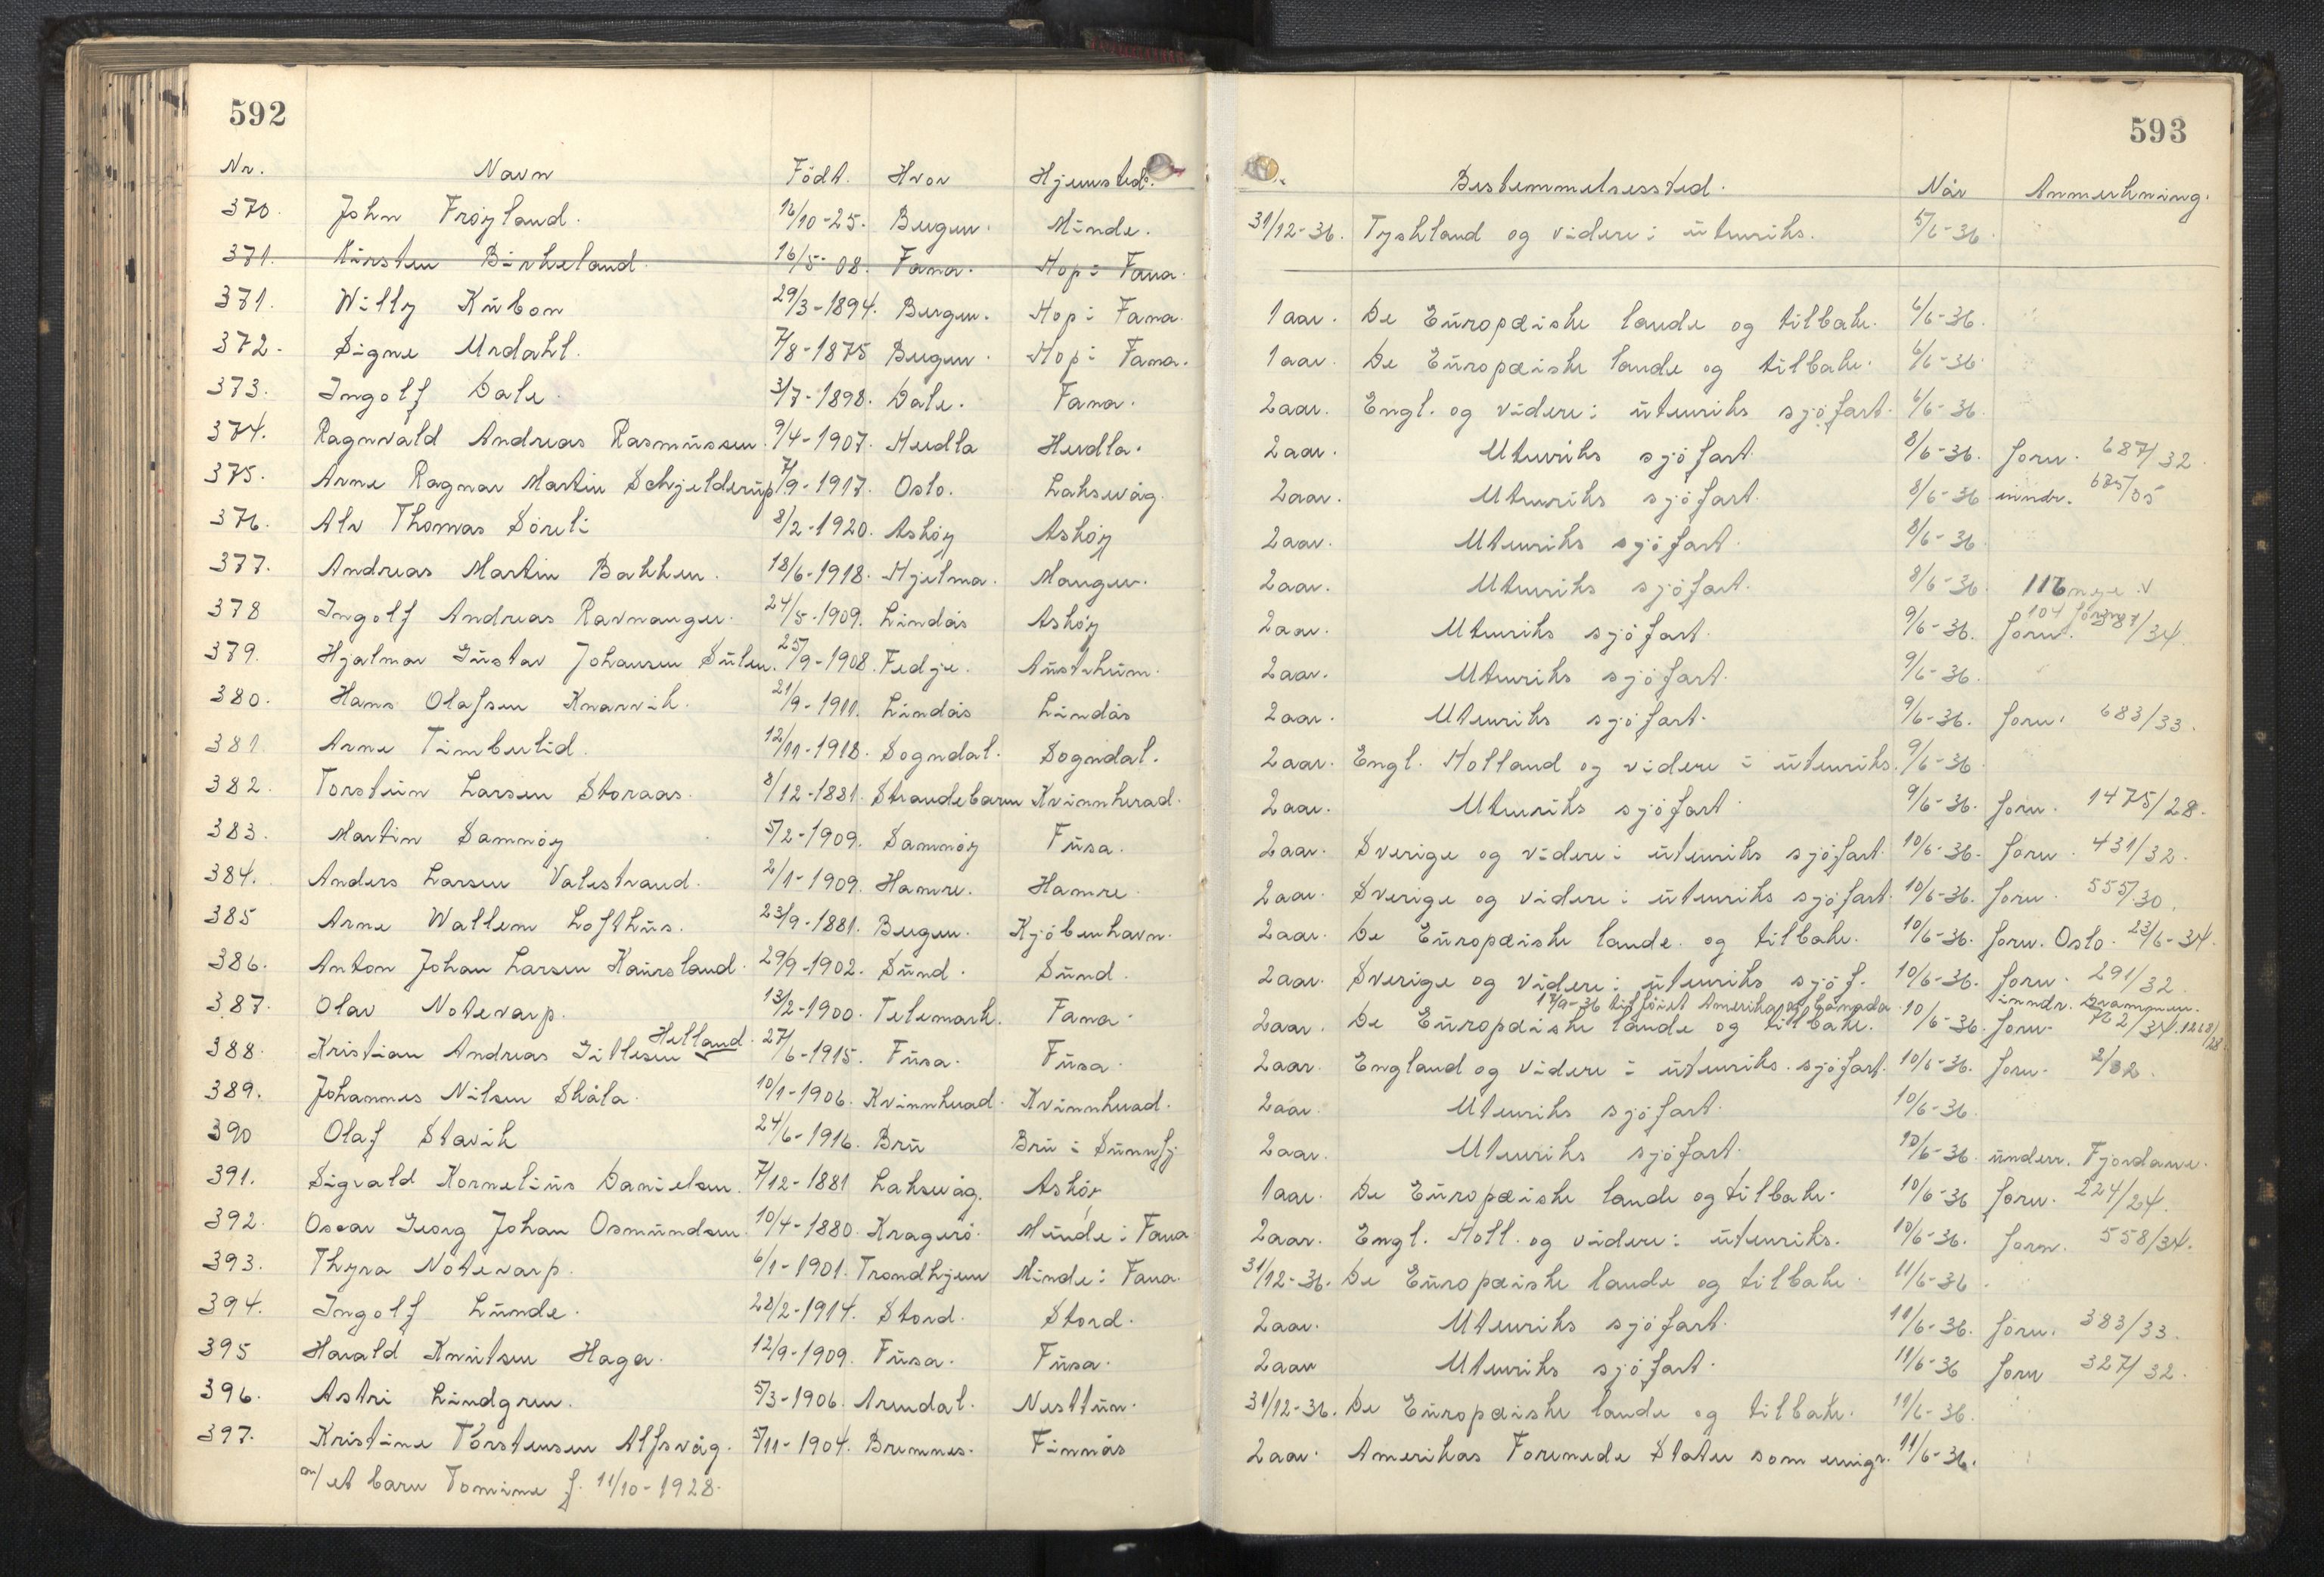 592
Nr. Navn Født. Hvor Hjemsted.
370. John Frøyland. 12/10-25. Bergen. Minde.
371. Kirsten Birkeland. 16/5-08. Fana. Hop i Fana.
371. Willy Kubon 29/3-1894. Bergen. Hop i Fana.
372. Signe Urdahl. 7/8-1875 Bergen. Hop i Fana.
373. Ingolf Dale. 3/7-1898. Dale. Fana.
374. Ragnvald Andreas Rasmussen. 9/4-1907. Herdla Herdla.
375. Arne Ragnar Martin Schjelderup 7/9-1917. Oslo. Laksevåg.
376. Alv Thomas Søreli 8/2-1920. Askøy Askøy
377. Andreas Martin Bakken. 18/6-1918. Hjelma. Manger.
378 Ingolf Andreas Ravnanger. 24/5-1909. Lindås Askøy
379. Hjalmar Gustav Johansen Sulen. 25/9-1908. Fedje. Austrheim.
380. Hans Olafsen Knarvik. 21/9-1911. Lindås Lindås
381. Arne Timberlid. 12/11-1918. Sogndal. Sogndal.
382. Torstein Larsen Storaas. 8/12-1881. Strandebarm Kvinnherad.
383. Martin Samnøy 5/2-1909. Samnøy Fusa.
384. Anders Larsen Valestrand. 2/1-1909. Hamre. Hamre.
385 Arne Wallem Lofthus. 23/9-1881. Bergen. Kjøbenhavn.
386. Anton Johan Larsen Kausland. 29/9-1902. Sund. Sund.
387. Olav Notevarp. 13/2-1900. Telemark. Fana.
388. Kristian Andreas Gitlesen Helland. 27/6-1915. Fusa. Fusa.
389. Johannes Nilsen Skåla. 10/1-1906. Kvinnherad. Kvinnherad.
390 Olaf Stavik 24/6-1916. Bru Bru i Sunnfj
391. Sigvald Kornelius Danielsen. 7/12-1881 Laksevåg. Askøy
392. Oscar Georg Johan Osmundsen. 10/4-1880. Kragerø. Minde i Fana
393. Thyra Notevarp. 6/1-1901. Trondhjem Minde i Fana.
394. Ingolf Lunde. 28/2-1914. Stord. Stord.
395 Harald Knutsen Haga. 12/9-1909. Fusa. Fusa.
396. Astri Lindgren. 5/3-1906. Arendal. Nesttun.
397. Kristine Torstensen Alfsvåg. 5/11-1904. Bremnes. Finnås
m/ et barn Tomine f. 11/10-1928.
593
Bestemmelsessted. Når Anmerkning.
31/12-36. Tyskland og videre i utenriks. 5/6-36.
1 aar. De Europæiske lande og tilbake. 6/6-36.
1 aar. De Europæiske lande og tilbake. 6/6-36.
2 aar. Engl. og videre i utenriks sjøfart. 6/6-36.
2 aar. Utenriks sjøfart. 8/6-36. forn. 687/32.
2 aar. Utenriks sjøfart. 8/6-36 inndr. 685/35
2 aar. Utenriks sjøfart. 8/6-36
2 aar. Utenriks sjøfart. 8/6-36. 116 nye.
2 aar. Utenriks sjøfart. 9/6-36. forn. /34.
2 aar. Utenriks sjøfart. 9/6-36.
2 aar. Utenriks sjøfart. 9/6-36. forn. 683/33.
2 aar. Engl. Holland og videre i utenriks. 9/6-36
2 aar. Utenriks sjøfart 9/6-36. forn. 1475/28.
2 aar. Sverige og videre i utenriks sjøfart. 10/6-36. forn. 431/32.
2 aar. Sverige og videre i utenriks sjøfart. 10/6-36. forn. 555/30.
2 aar. De Europæiske lande og tilbake. 10/6-36. forn. Oslo. 23/6-34.
2 aar. Sverige og videre i utenriks sjøf. 10/6-36. forn. 291/32
17/9-36 tilføiet Amerika og Canada inndr. Drammen.
2 aar. De Europæiske lande og tilbake. 10/6-36. forn. 762/34. 1268/28.
2 aar. England og videre i utenriks. sjøfart. 10/6-36. forn. 2/32.
2 aar. Utenriks sjøfart. 10/6-36.
2 aar. Utenriks sjøfart. 10/6-36. underr. Fjordane.
1 aar. De Europæiske lande og tilbake. 10/6-36 forn. 224/24.
2 aar. Engl. Holl. og videre i utenriks. 10/6-36. forn. 558/34.
31/12-36. De Europæiske lande og tilbake. 11/6-36.
2 aar. Utenriks sjøfart. 11/6-36. forn. 383/33.
2 aar Utenriks sjøfart. 11/6-36 forn 327/32.
31/12-36. De Europæiske lande og tilbake. 11/6-36.
2 aar. Amerikas Forenede Stater som emigr. 11/6-36.